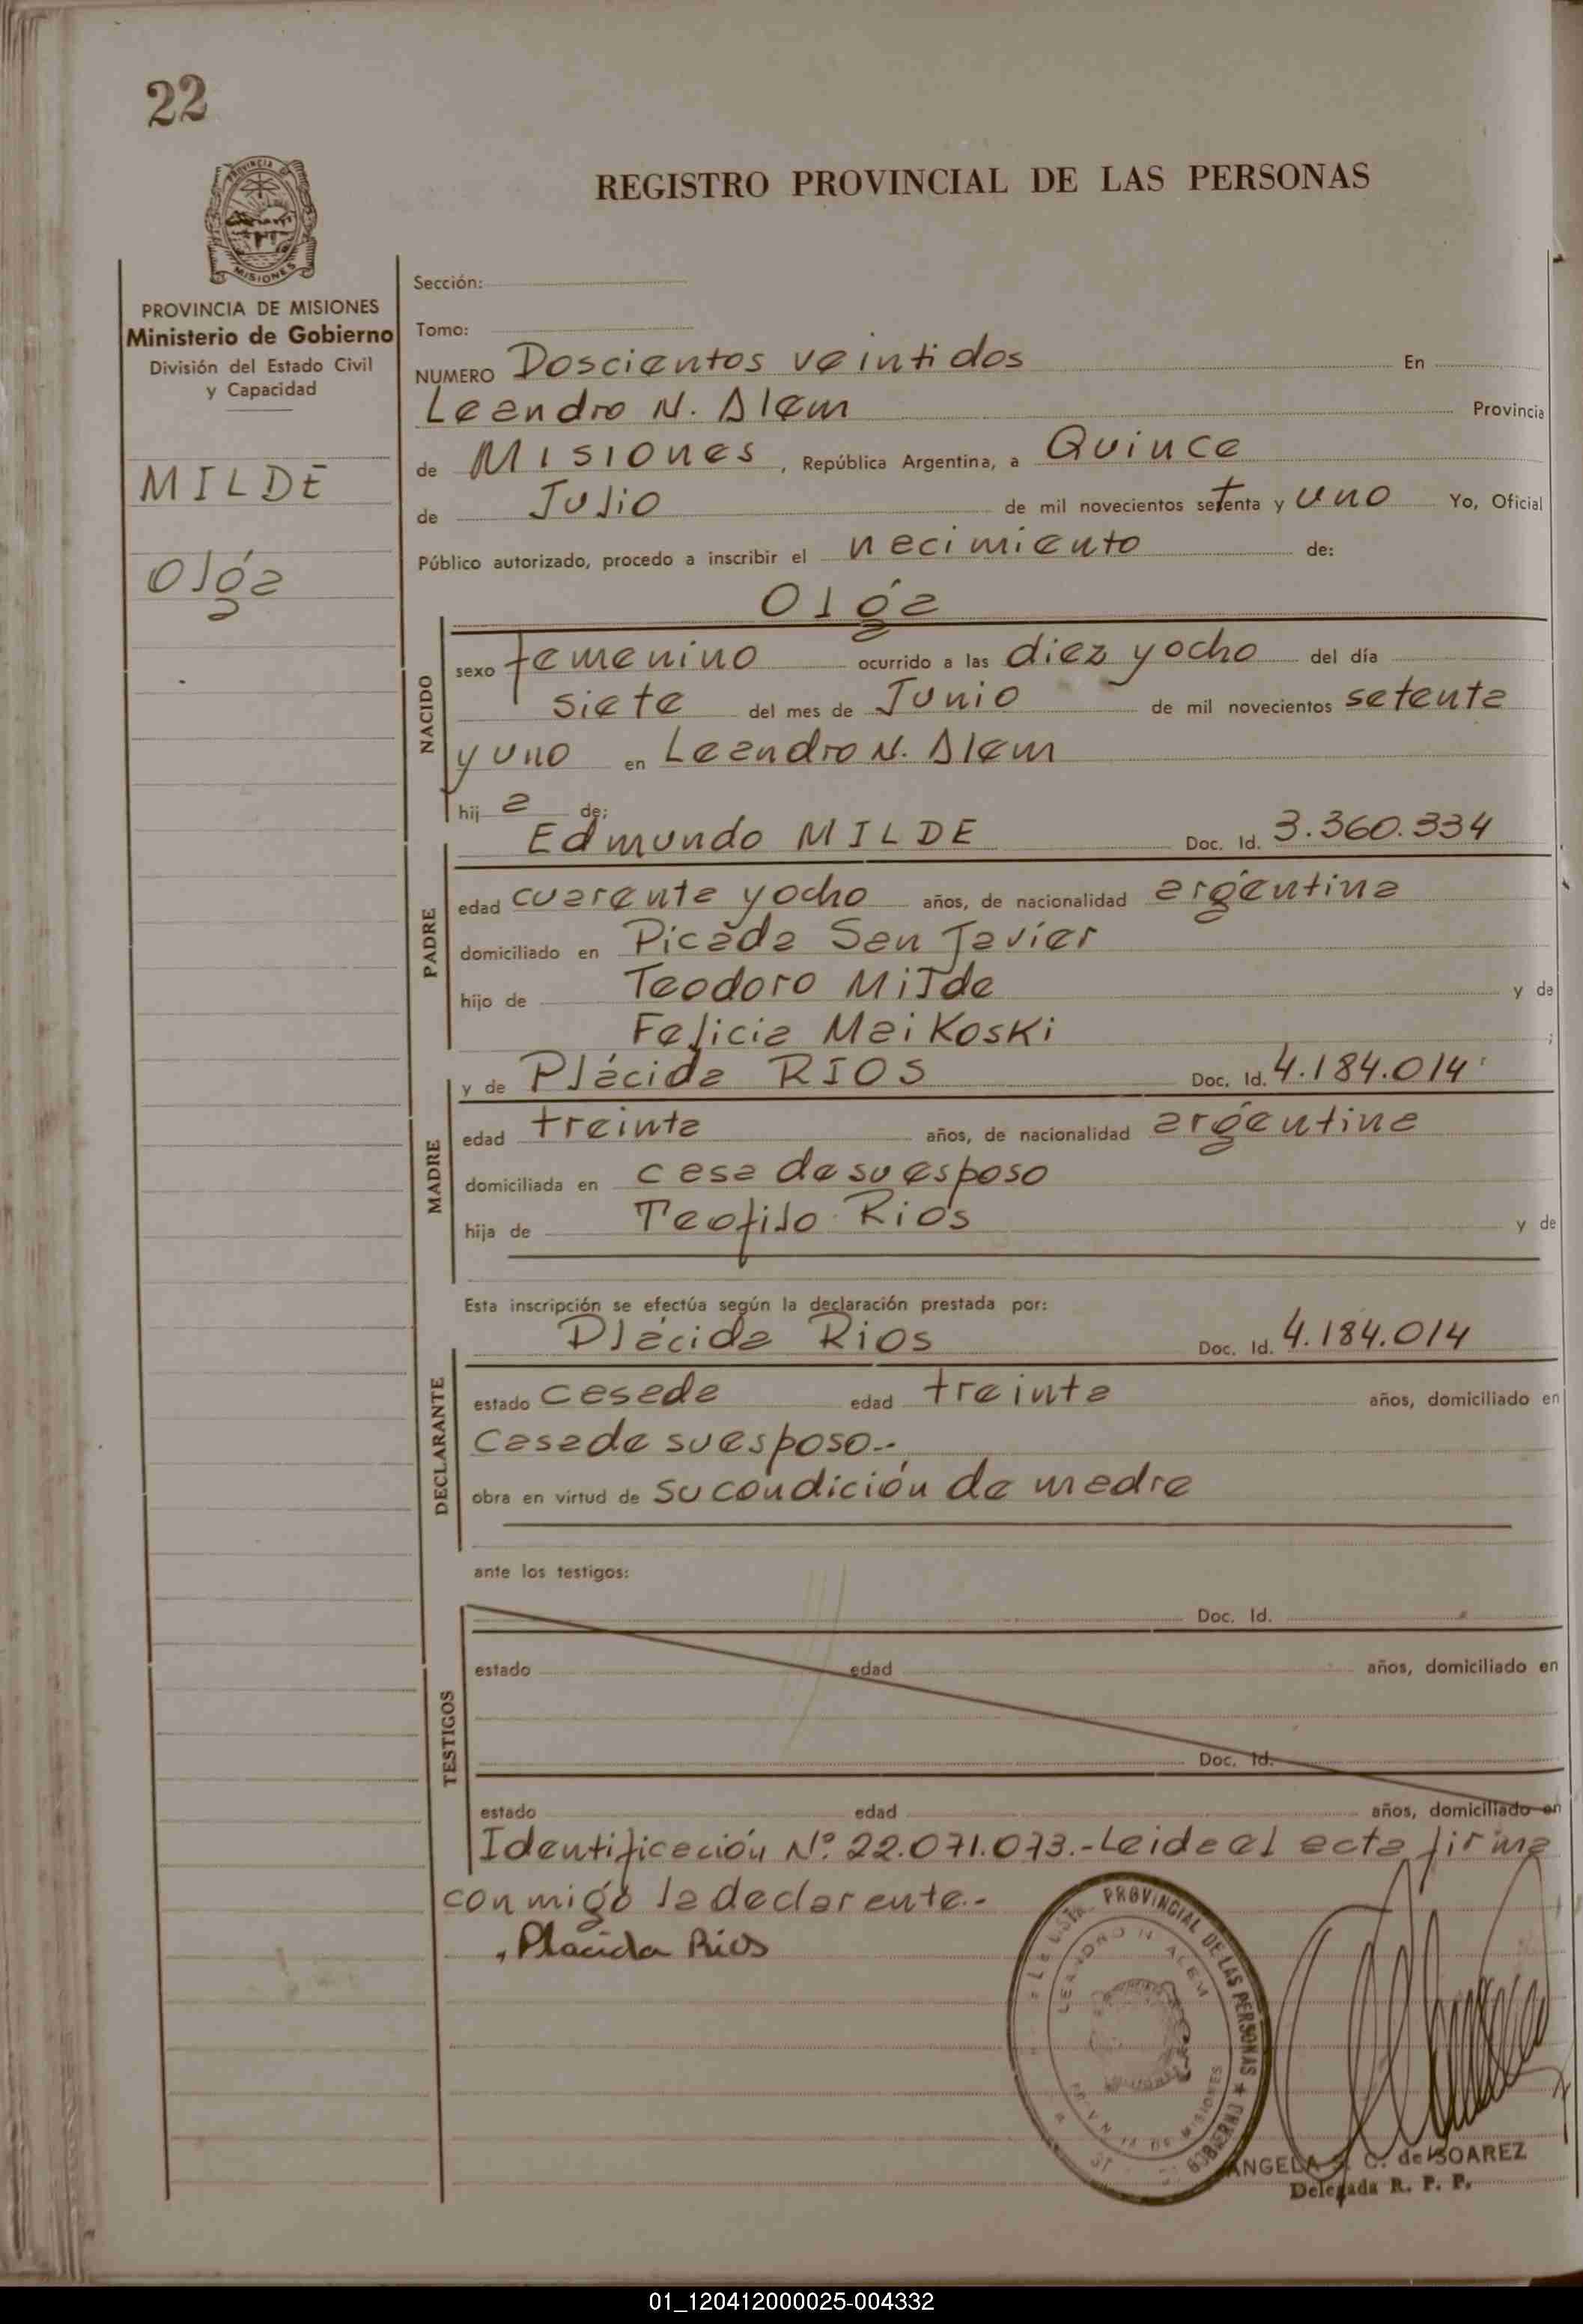 22
REGISTRO PROVINCIAL DE LAS PERSONAS
PROVINCIA DE MISIONES
Ministerio de Gobierno
División del Estado Civil
y Capacidad
MILDE
Olga
Sección:
Tomo:
NUMERO Doscientos veintidos En
Leandro N. Alem Provincia
de Misiones, República Argentina, a Quince
de Julio de mil novecientos setenta y uno Yo, Oficial
Público autorizado, procedo a inscribir el nacimiento de:
Olga
NACIDO
sexo femenino ocurrido a las diez y ocho del día
siete del mes de Junio de mil novecientos setenta
y uno en Leandro N. Alem
hij a de:
PADRE
Edmundo MILDE Doc. Id. 3.360.334
edad cuarenta y ocho años, de nacionalidad argentina
domiciliado en Picada San Javier
hijo de Teodoro Milde y de
Felicia Maikoski ;
MADRE
y de Plácida RIOS Doc. Id. 4.184.014
edad treinta años, de nacionalidad argentina
domiciliada en casa de su esposo
hija de Teofilo Rios y de
Esta inscripción se efectúa según la declaración prestada por:
DECLARANTE
Plácida Rios Doc. Id. 4.184.014
estado casada edad treinta años, domiciliado en
casa de su esposo.-
obra en virtud de su condición de madre
ante los testigos:
TESTIGOS
Doc. Id.
estado edad años, domiciliado en
Doc. Id.
estado edad años, domiciliado en
Identificación Nº. 22.071.073.- Leida el acta firma
conmigo la declarante.-
Placida Rios
PROVINCIAL DE LAS PERSONAS ★ GOBIERNO
LEANDRO N ALEM
DE MISIONES
ANGELA C. de SOAREZ
Delegada R. P. P.
01_120412000025-004332